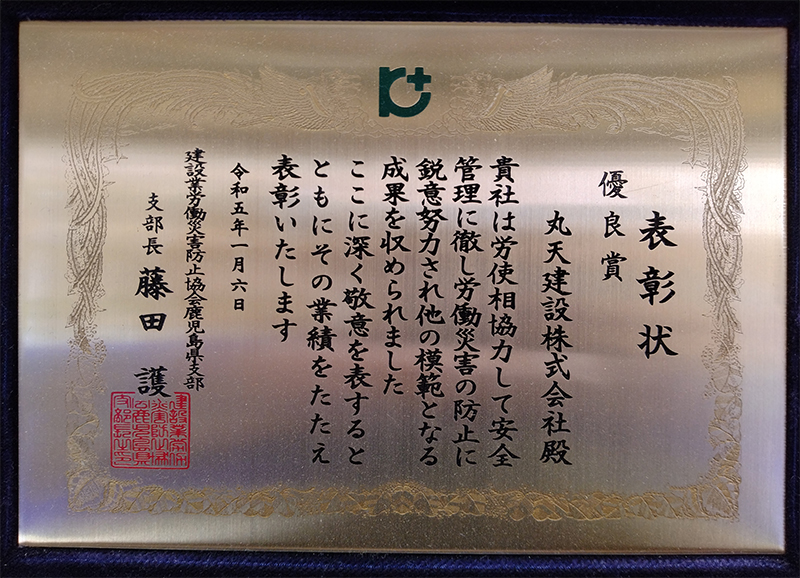 表彰状
優良賞
丸天建設株式会社殿
貴社は労使相協力して安全
管理に徹し労働災害の防止に
鋭意努力され他の模範となる
成果を収められました
ここに深く敬意を表すると
ともにその業績をたたえ
表彰いたします
令和五年一月六日
建設業労働災害防止協会鹿児島県支部
支部長 藤田 護